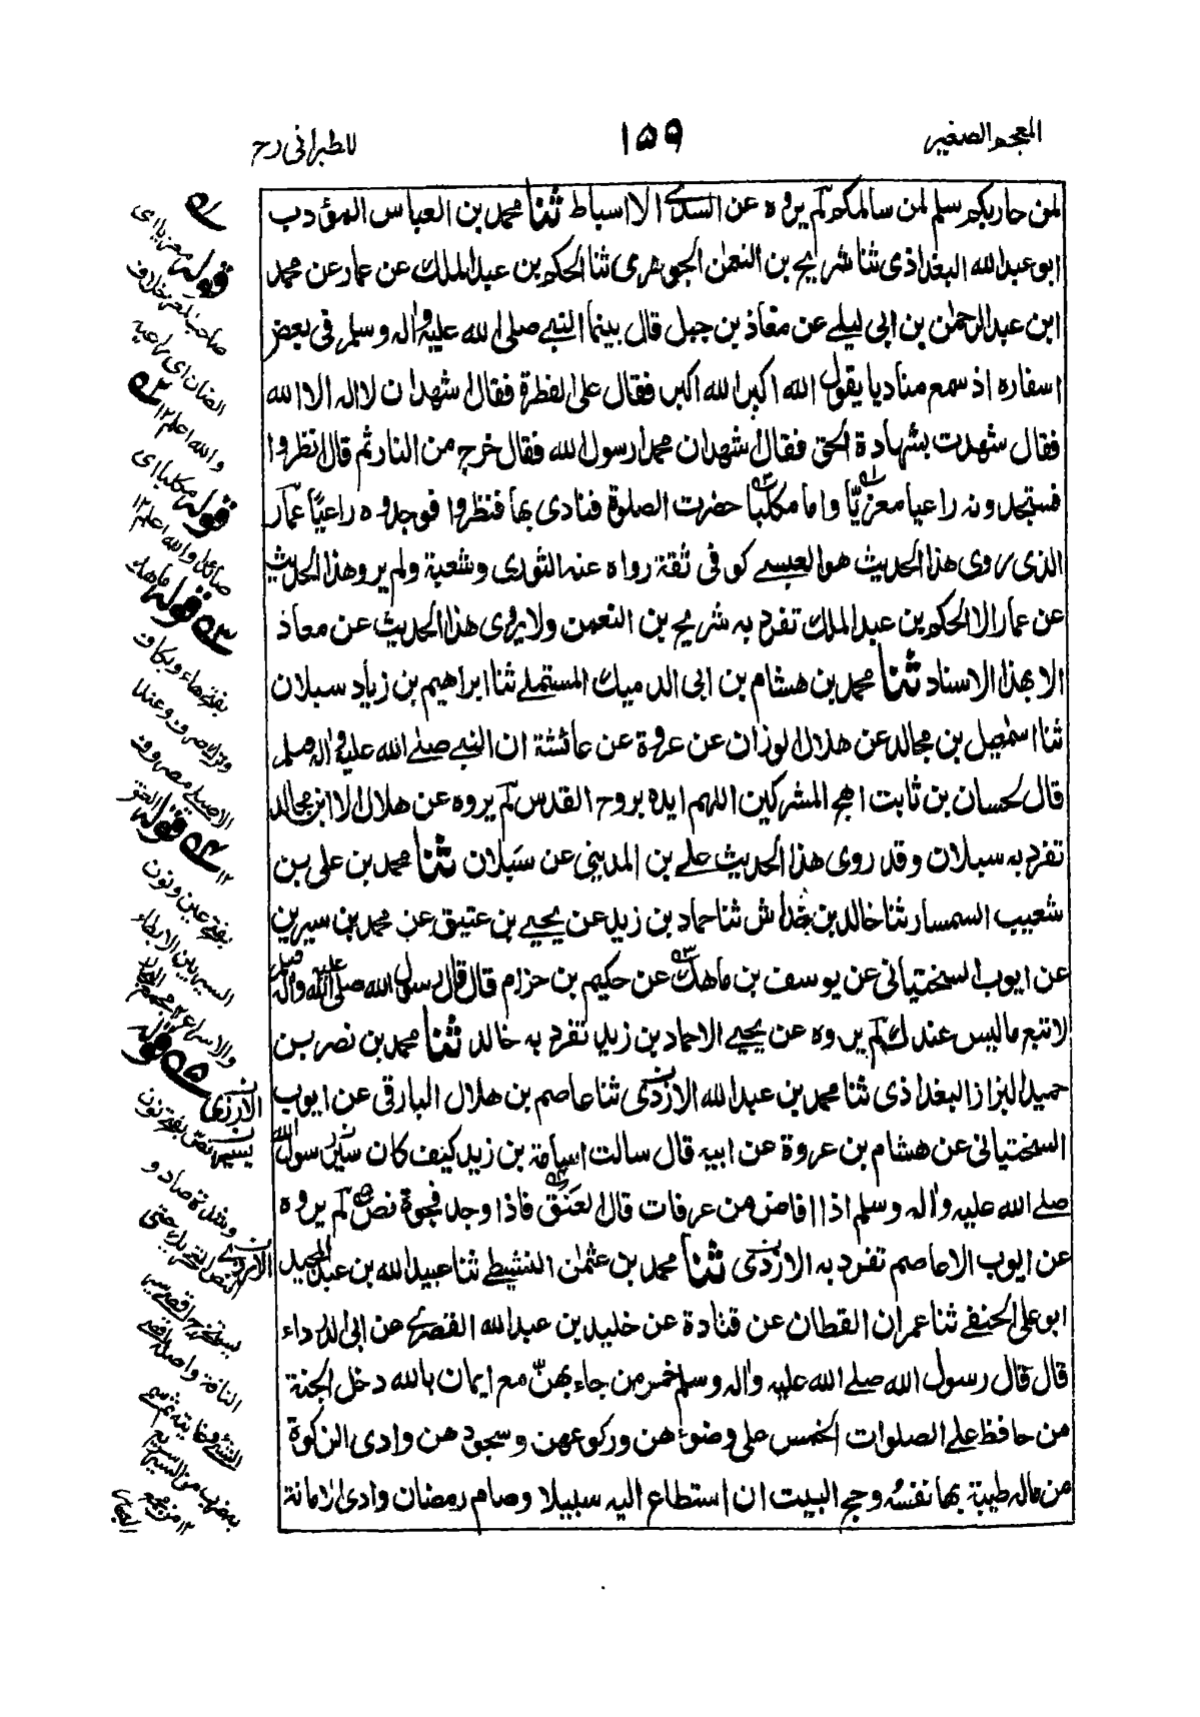 المعجم الصغير
١٥٩
للطبرانی رح
لمن حاربكم سلم لمن سالمكم لم يروه عن السدي الا اسباط ثنا محمد بن العباس المؤدب
ابو عبد الله البغداذی ثنا شريح بن النعمٰن الجوهری ثنا الحكم بن عبد الملك عن عمار عن محمد
ابن عبد الرحمٰن بن ابی ليلے عن معاذ بن جبل قال بينما النبے صلی الله عليه واٰله وسلم فی بعض
اسفاره اذ سمع مناديا يقول الله اكبر الله اكبر فقال علی الفطرة فقال اشهد ان لا اله الا الله
فقال شهدت بشهادة الحق فقال اشهد ان محمدا رسول الله فقال خرج من النار ثم قال انظروا
فستجدونه راعيا معزيّا واما مكلبا حضرت الصلوة فنادی بها فنظروا فوجدوه راعيًا عمار
الذی روی هذا الحديث هو العبسے كوفی ثقة رواه عنه الثوری وشعبة ولم يرو هذا الحديث
عن عمار الا الحكم بن عبد الملك تفرد به شريح بن النعمٰن ولا يروی هذا الحديث عن معاذ
الا بهذا الاسناد ثنا محمد بن هشام بن ابی الدميك المستملے ثنا ابراهيم بن زياد سبلان
ثنا اسمٰعيل بن مجالد عن هلال الوزان عن عروة عن عائشة ان النبے صلے الله عليه واٰله وسلم
قال لحسان بن ثابت اهج المشركين اللهم ايده بروح القدس لم يروه عن هلال الا ابن مجالد
تفرد به سبلان وقد روی هذا الحديث علے بن المدينی عن سَبَلان ثنا محمد بن علی بن
شعيب السمسار ثنا خالد بن خداش ثنا حماد بن زيد عن يحيے بن عتيق عن محمد بن سيرين
عن ايوب السختيانی عن يوسف بن ماهك عن حكيم بن حزام قال قال رسول الله صلی الله عليه واٰله وسلم
لا تبع ما ليس عندك لم يروه عن يحيے الا حماد بن زيد تفرد به خالد ثنا محمد بن نصر بن
حميد البزاز البغداذی ثنا محمد بن عبد الله الازدی ثنا عاصم بن هلال البارقی عن ايوب
السختيانی عن هشام بن عروة عن ابيه قال سالت اسامة بن زيد كيف كان سير رسول الله
صلے الله عليه واٰله وسلم اذا افاض من عرفات قال العَنَق فاذا وجد فجوة نص لم يروه
عن ايوب الا عاصم تفرد به الازدی ثنا محمد بن عثمٰن النشيطے ثنا عبيد الله بن عبد المجيد
ابو علی الحنفے ثنا عمران القطان عن قتادة عن خليد بن عبد الله القصری عن ابی الدرداء
قال قال رسول الله صلے الله عليه واٰله وسلم خمس من جاء بهنّ مع ايمان بالله دخل الجنة
من حافظ علے الصلوات الخمس علی وضوئهن وركوعهن وسجودهن وادی الزكوة
من ماله طيبة بها نفسه وحج البيت ان استطاع اليه سبيلا وصام رمضان وادی الامانة
قوله معزيا ای
صاحب معز خلاف
الضان ای راعيه
والله اعلم ١٢
قوله مكلبا ای
صائد والله اعلم ١٢
قوله ماهك
بفتح هاء وبكاف
وترك صرف وعند
الاصيلے مصروف
١٢ قوله العنق
بفتح عين ونون
السير بين الابطاء
والاسراع ١٢
قوله
نص بفتح نون
وشدة صاد